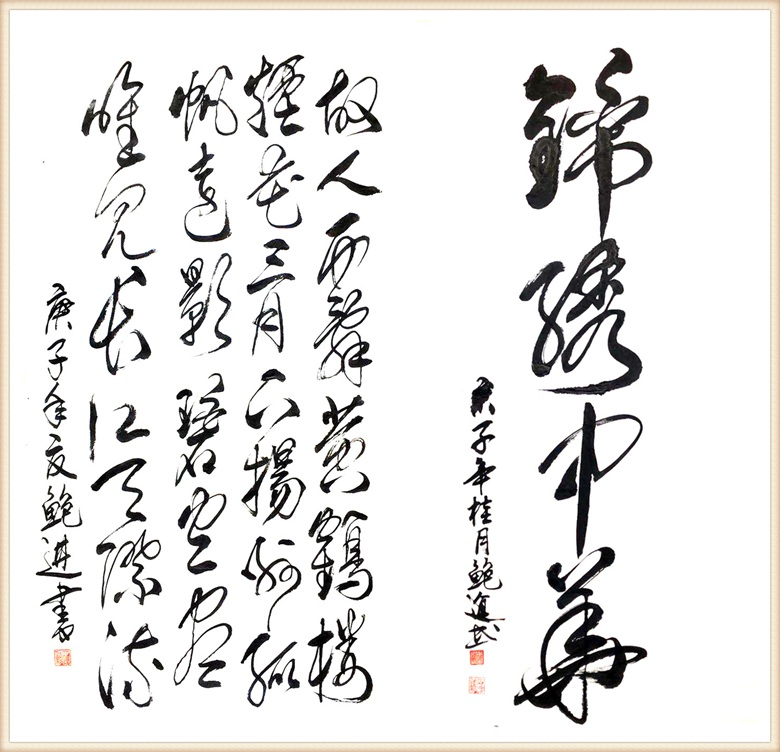 錦繡中華
庚子年桂月鮑進書
故人西辭黃鶴樓
煙花三月下揚州孤
帆遠影碧空盡
唯見長江天際流
庚子年夏鮑進書